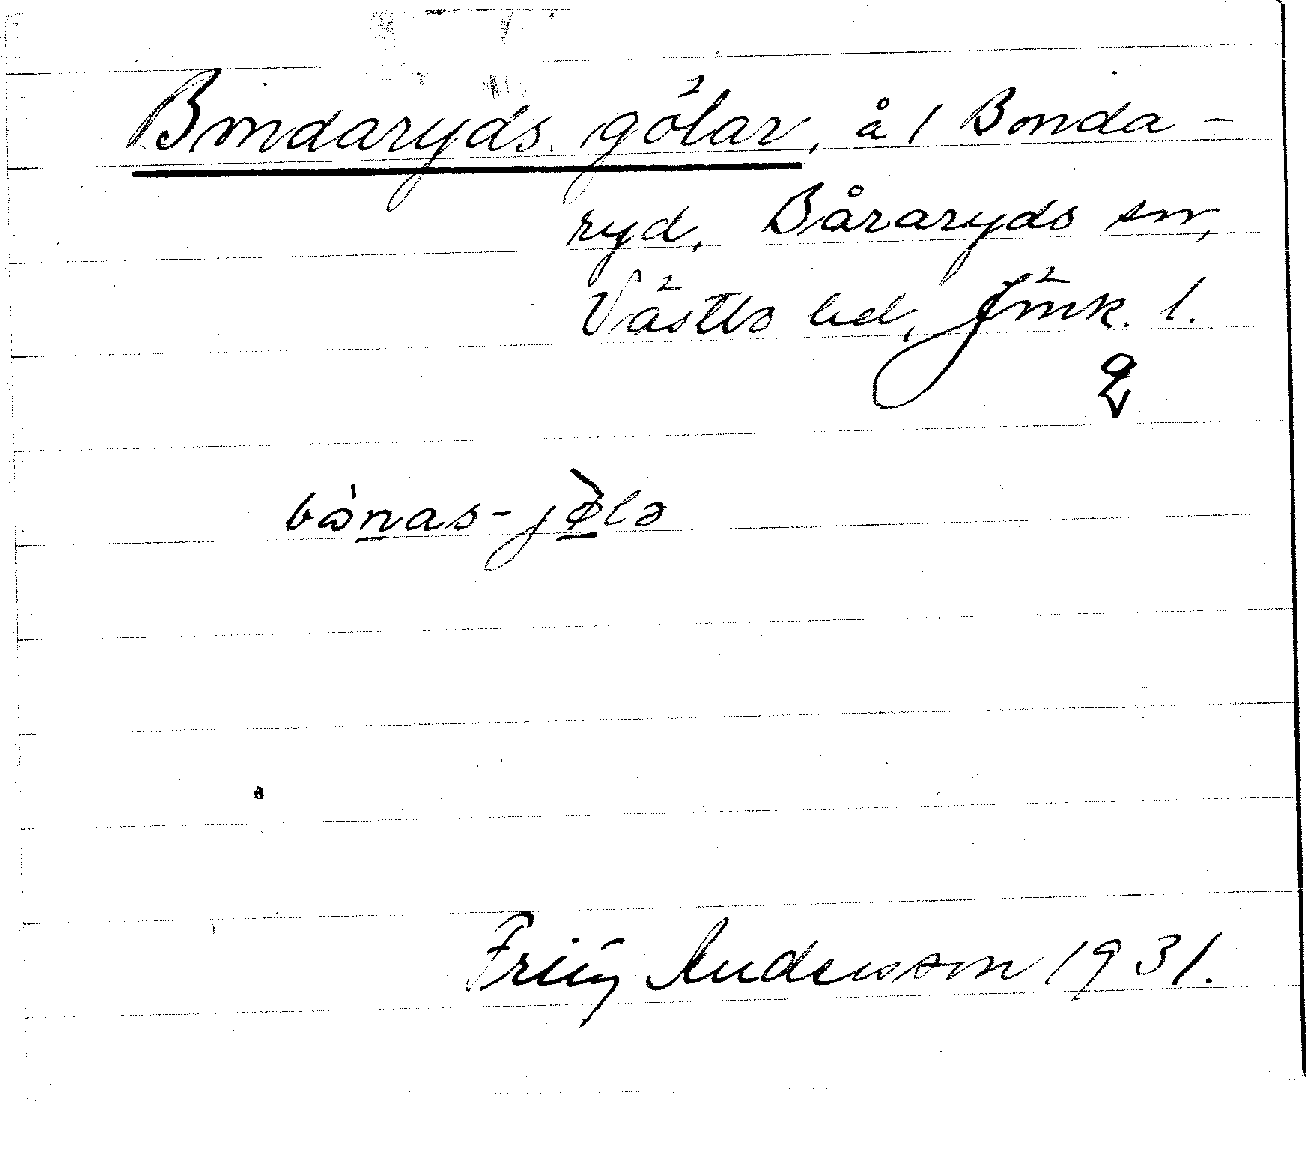 Bondaryds gölar, å 1 Bonda-
ryd, Båraryds sn,
Västbo hd, Jönk. l.
bo̊nas-jølə
Fritz Andersson 1931.